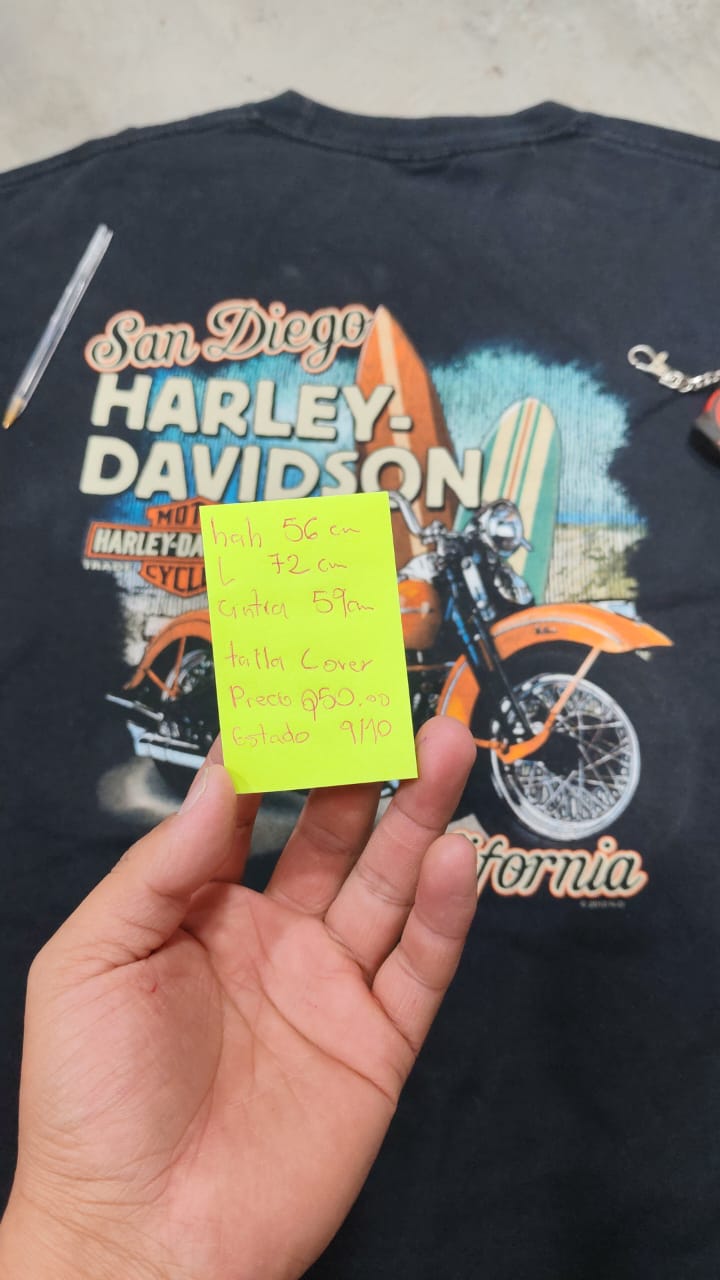 San Diego
HARLEY-
DAVIDSON
MOT
HARLEY-DA
CYCL
hah 56 cm
L 72 cm
cintra 59cm
talla Cover
Precio Q50.00
Estado 9/10
ifornia